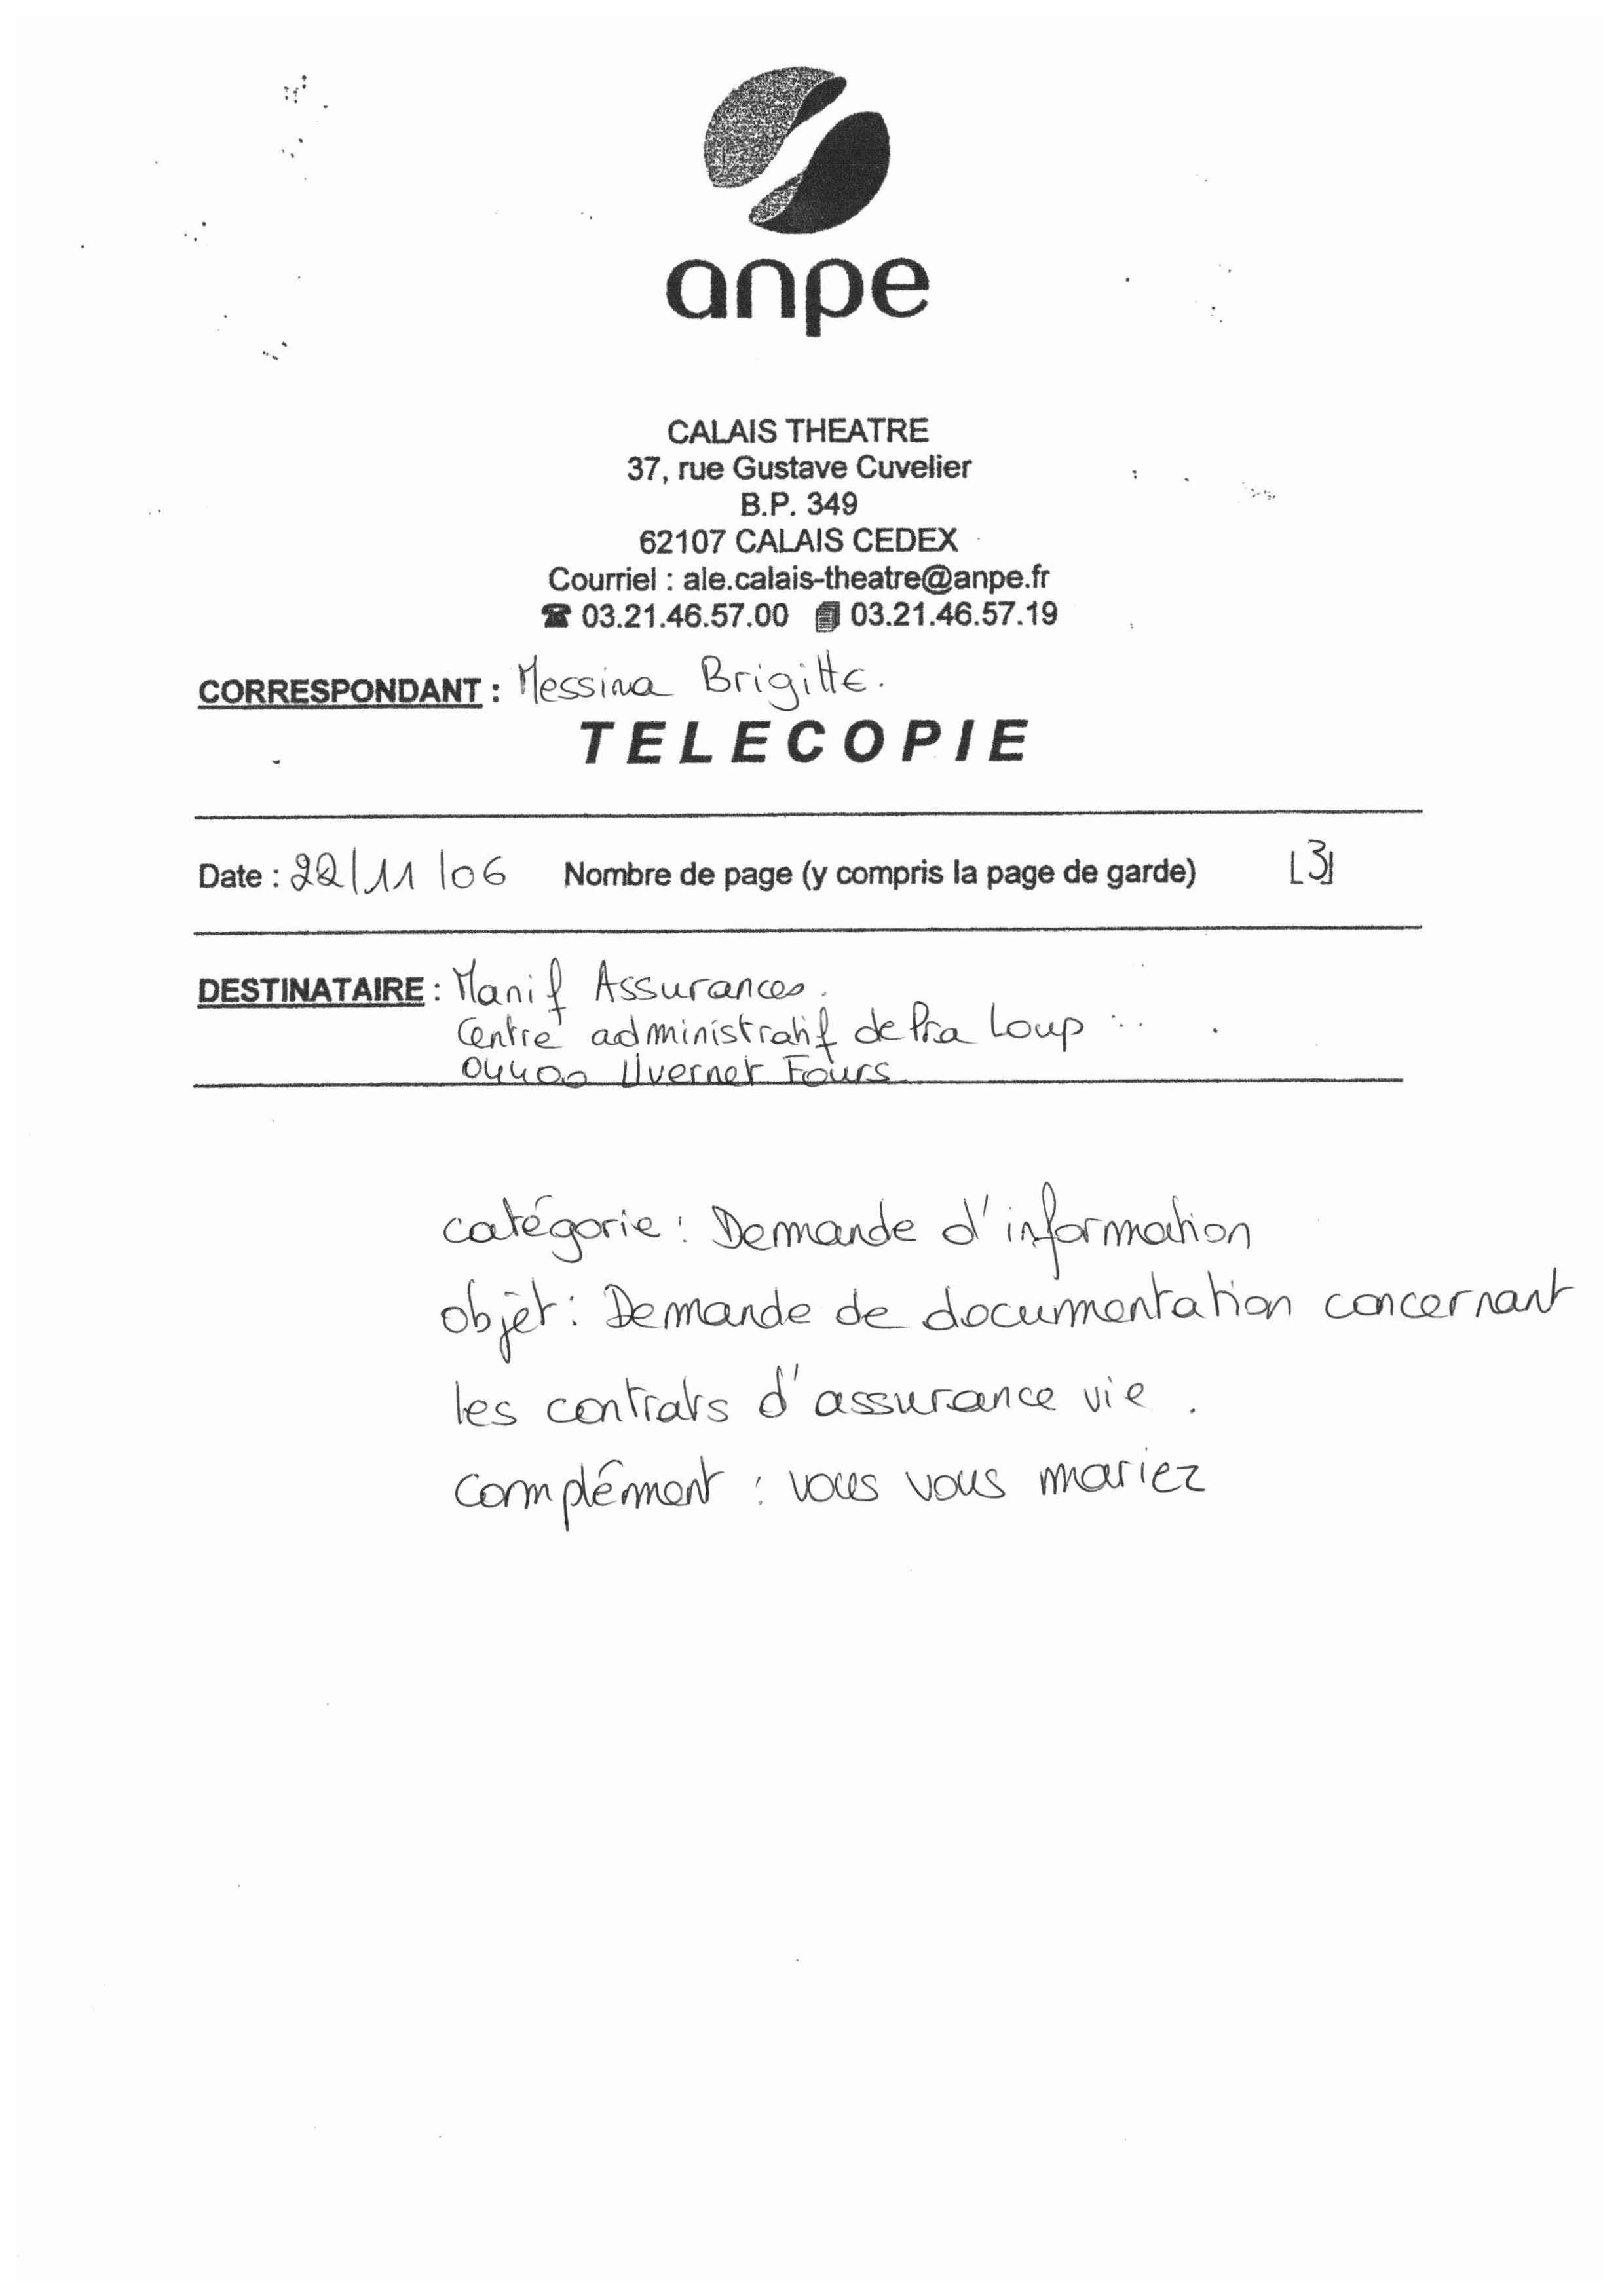 anpe
CALAIS THEATRE
37, rue Gustave Cuvelier
B.P. 349
62107 CALAIS CEDEX
Courriel : ale.calais-theatre@anpe.fr
☎ 03.21.46.57.00 03.21.46.57.19
CORRESPONDANT : Messina Brigitte.
TELECOPIE
Date : 22/11/06 Nombre de page (y compris la page de garde) [3]
DESTINATAIRE : Manif Assurances.
Centre administratif de Pra Loup
04400 Uvernet Fours
catégorie : Demande d'information
objet : Demande de documentation concernant
les contrats d'assurance vie.
complément : vous vous mariez